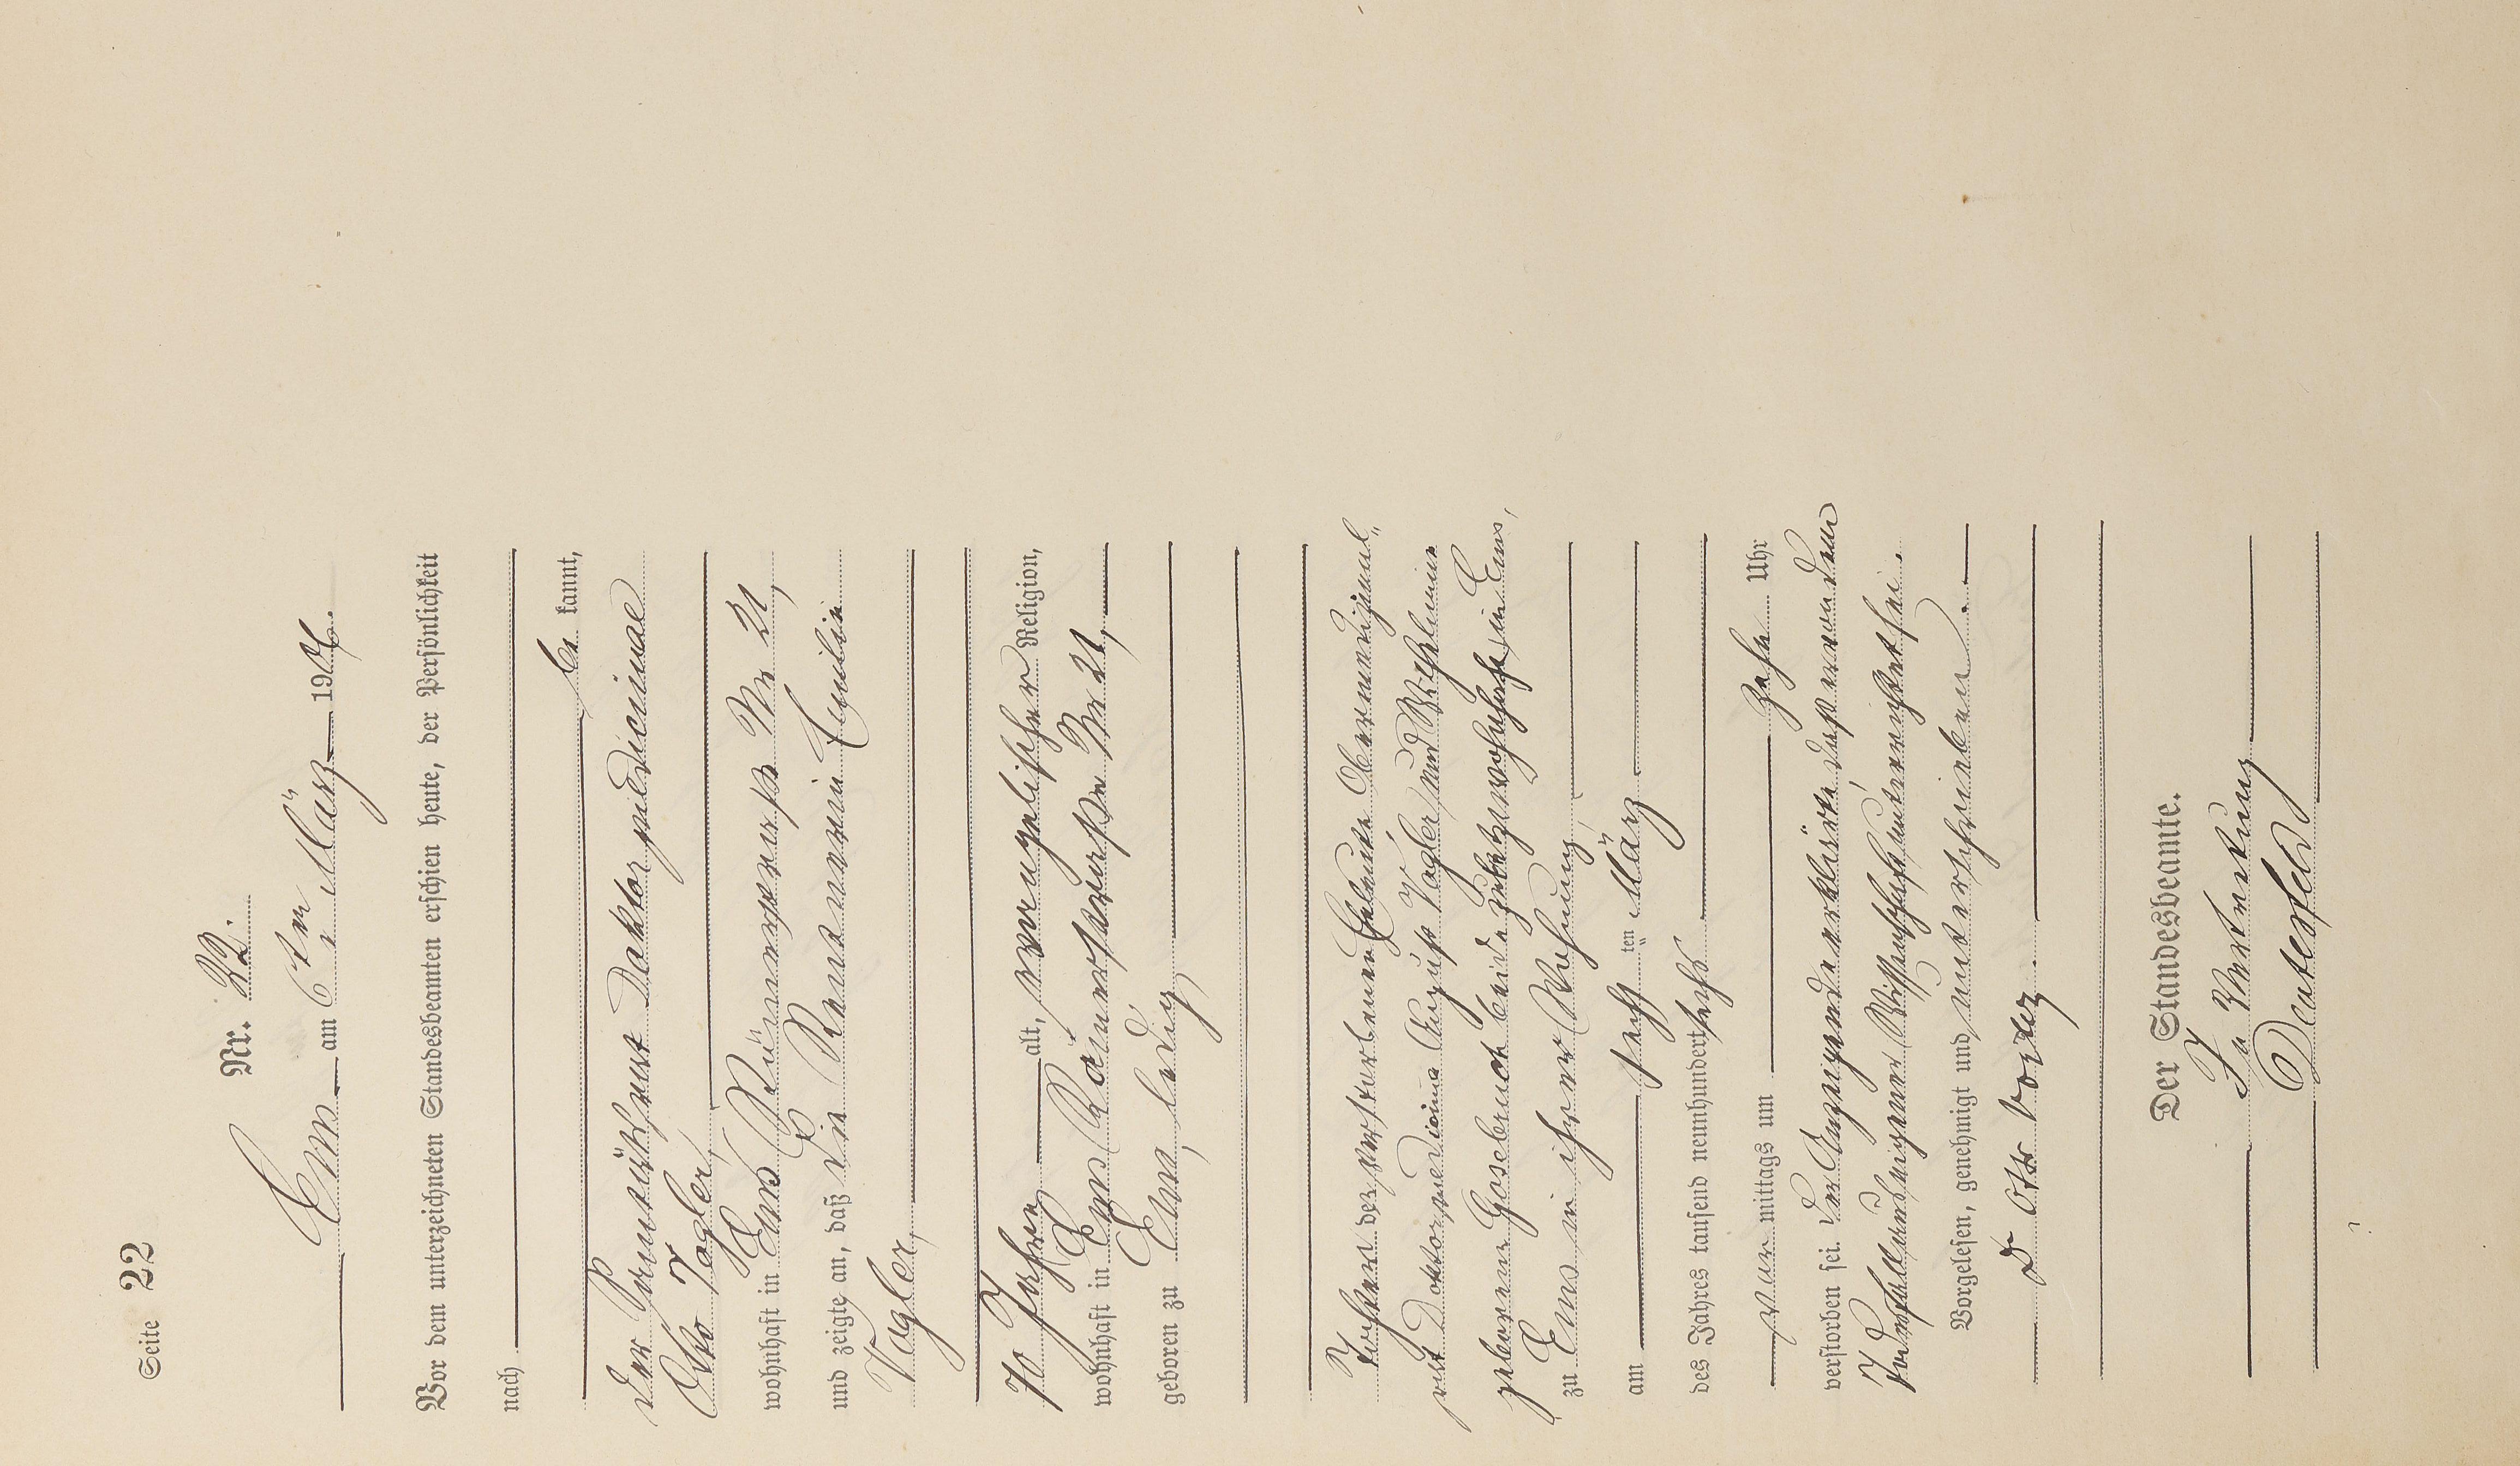 Seite 22
Nr. 32.
Ems am 6ten März 1906.
Vor dem unterzeichneten Standesbeamten erschien heute, der Persönlichkeit
nach
be kannt,
der Sanitätsrat Doktor medicinae
Otto Vogler,
wohnhaft in Ems Römerstraße Nr 21,
und zeigte an, daß die Rentnerin Emilie
Vogler,
70 Jahre alt, evangelischer Religion,
wohnhaft in Ems Römerstraße Nr 21,
geboren zu Ems, ledig,
Tochter der verstorbenen Eheleute Obermedizinal„
rat Doktor medicinae August Vogler und Wilhelmine
geborene Gosebruch beide zuletzt wohnhaft in Ems,
zu Ems in ihrer Wohnung,
am sechs ten März
des Jahres tausend neunhundert sechs
vor mittags um zehn Uhr
verstorben sei. Der Anzeigende erklärte, daß er von dem
Todesfall aus eigener Wissenschaft unterrichtet sei.
Vorgelesen, genehmigt und unterschrieben.
Dr Otto Vogler
Der Standesbeamte.
In Vertretung